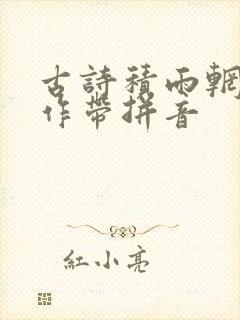 古詩積雨輞
作帶拼音
紅小亮